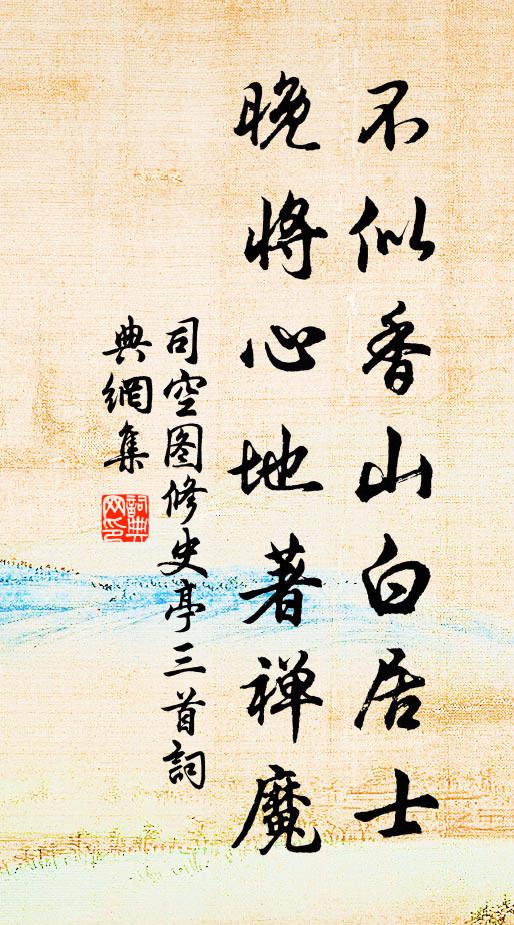 不似香山白居士
晚将心地著禅魔
司空图修史亭三首詞
典網集
詞典网印